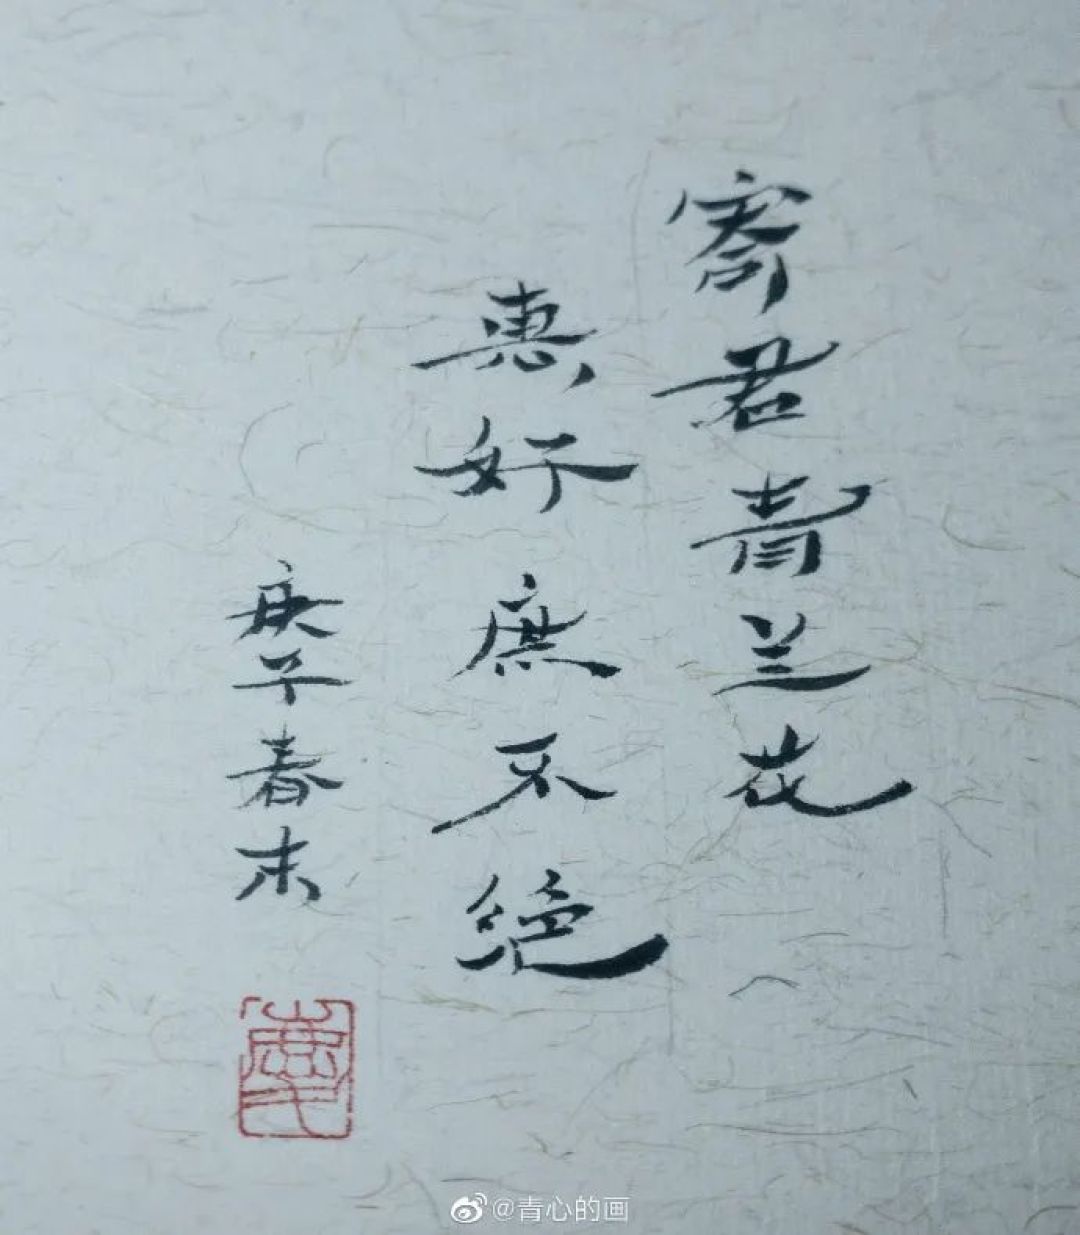 寄君青兰花
惠好庶不绝
庚子春末
@青心的画